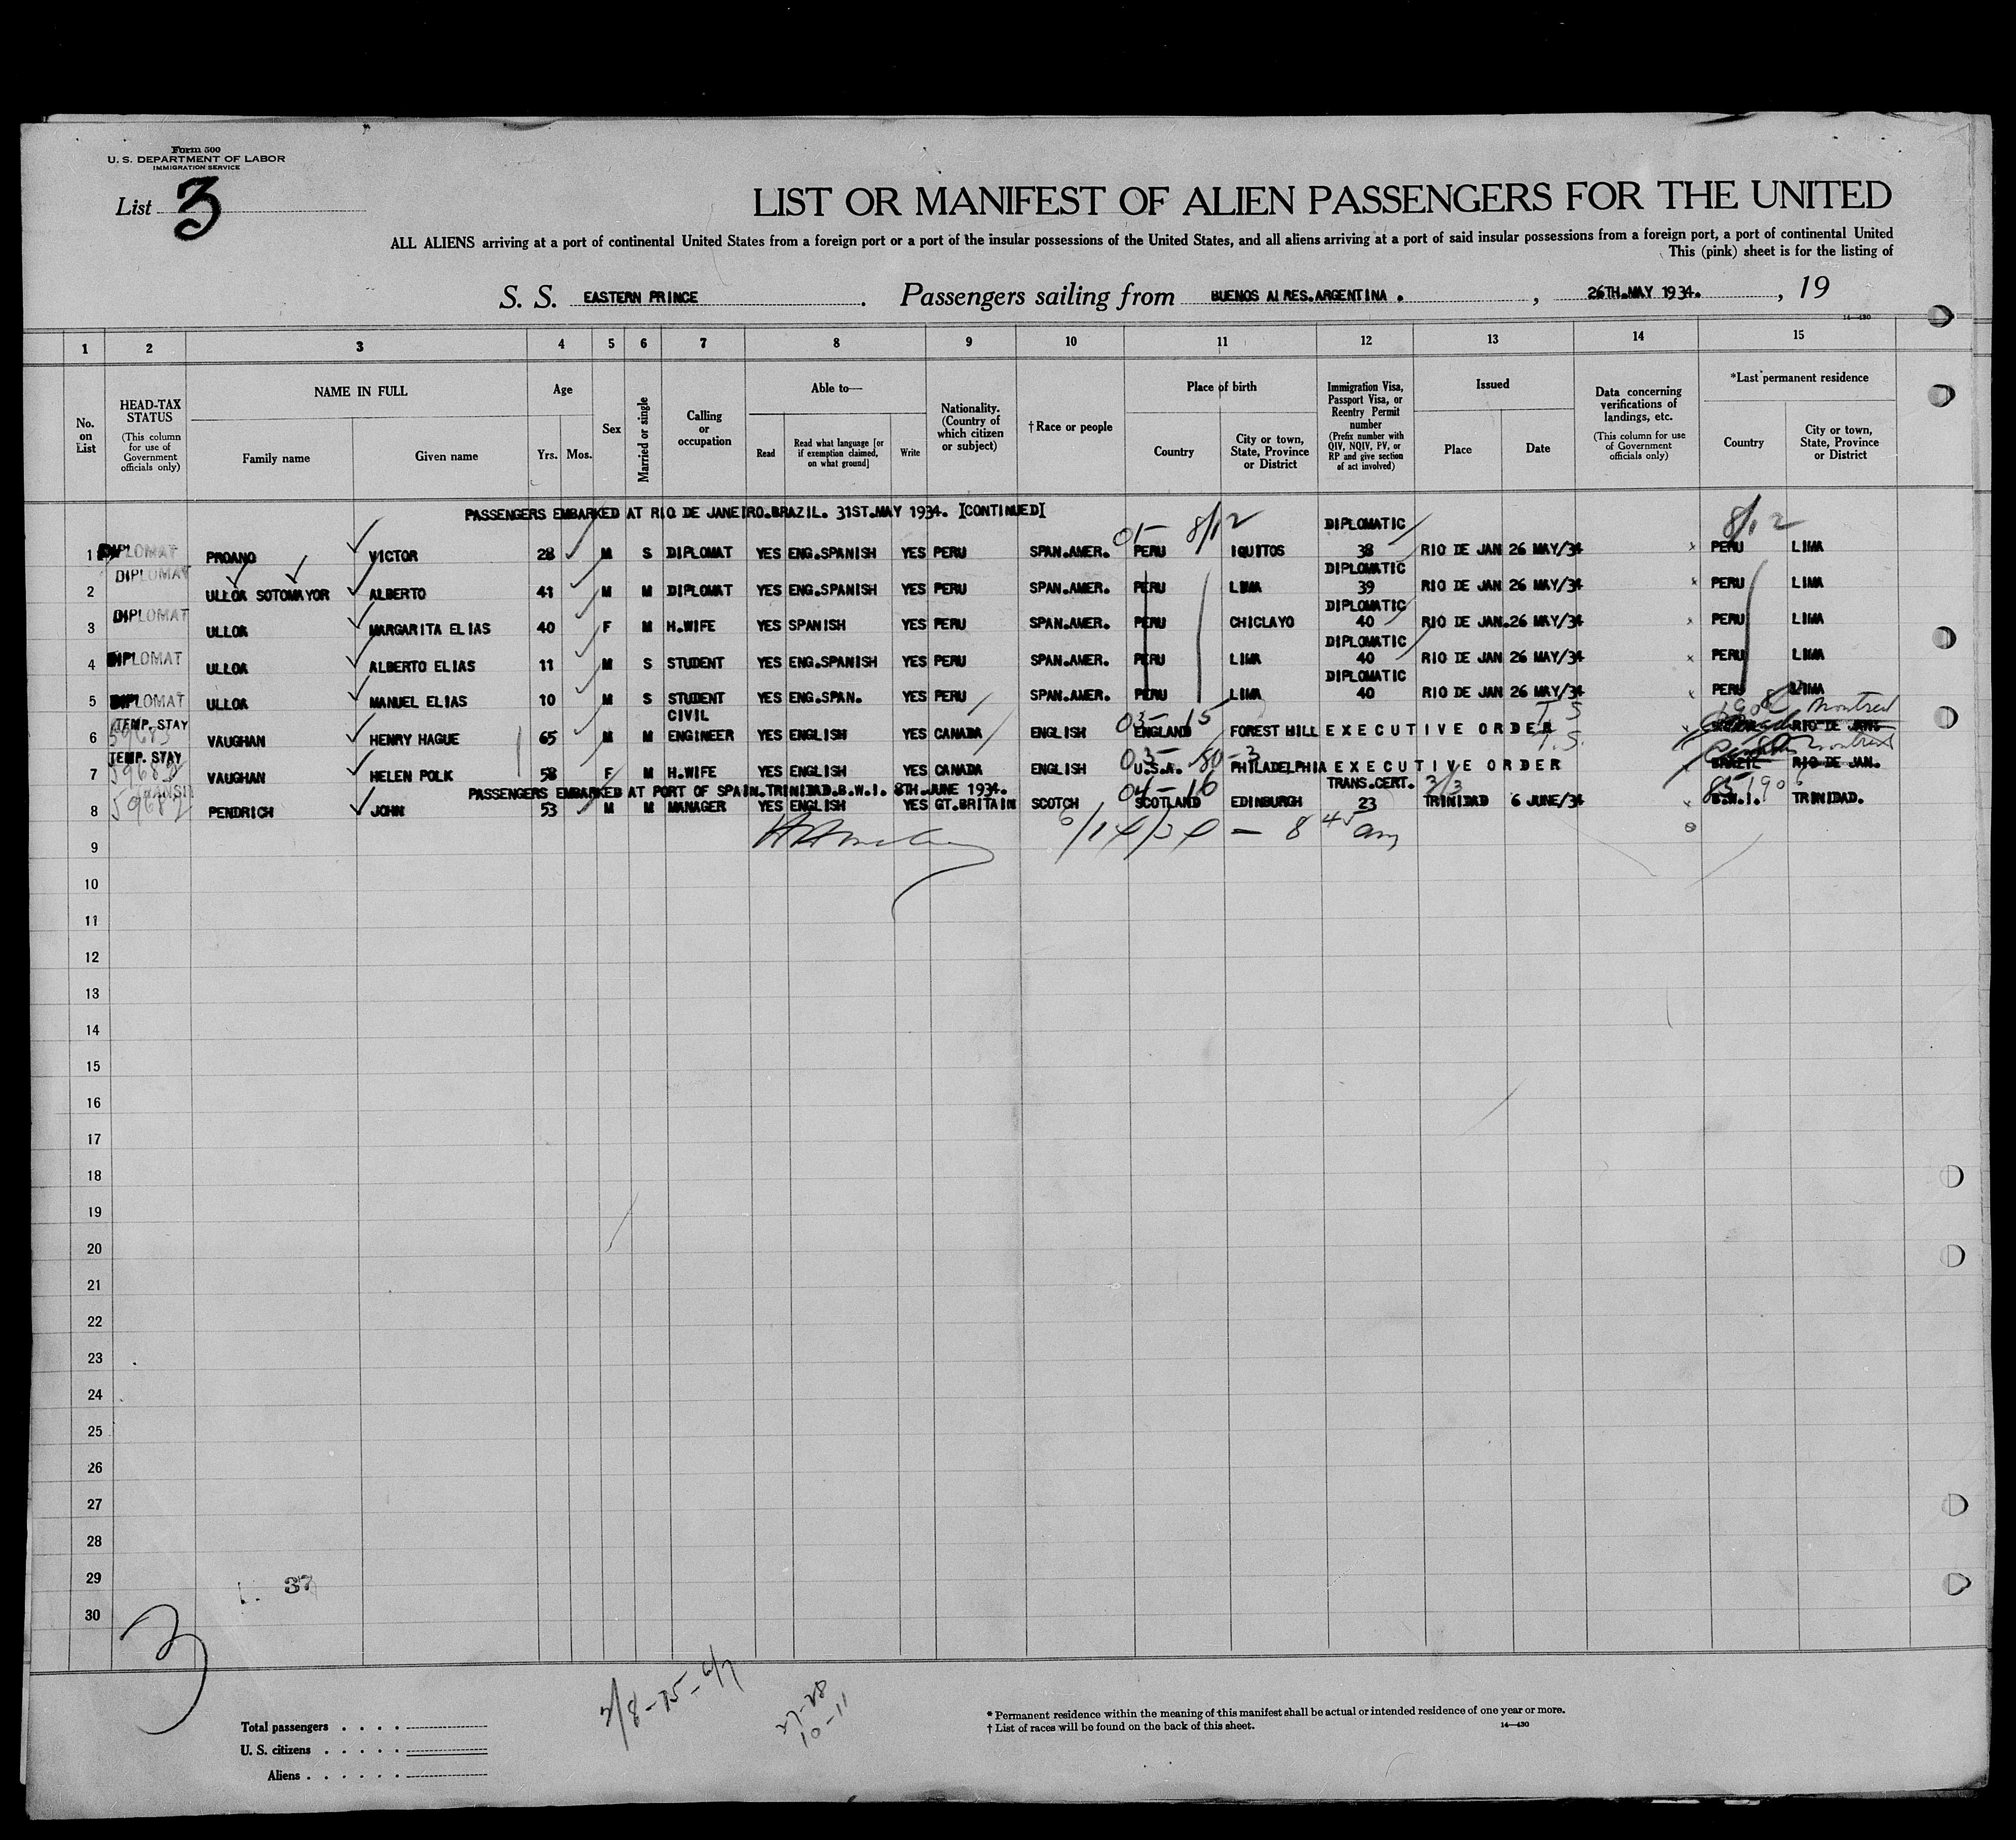 Form 500
U. S. DEPARTMENT OF LABOR
IMMIGRATION SERVICE
List 3
LIST OR MANIFEST OF ALIEN PASSENGERS FOR THE UNITED
ALL ALIENS arriving at a port of continental United States from a foreign port or a port of the insular possessions of the United States, and all aliens arriving at a port of said insular possessions from a foreign port, a port of continental United
This (pink) sheet is for the listing of
S. S. EASTERN PRINCE . Passengers sailing from BUENOS AIRES.ARGENTINA . , 26TH.MAY 1934. , 19
14—430
1 2 3 4 5 6 7 8 9 10 11 12 13 14 15
No. on List
HEAD-TAX STATUS (This column for use of Government officials only)
NAME IN FULL
Family name
Given name
Age
Yrs. Mos.
Sex
Married or single
Calling or occupation
Able to—
Read
Read what language [or if exemption claimed, on what ground]
Write
Nationality. (Country of which citizen or subject)
†Race or people
Place of birth
Country
City or town, State, Province or District
Immigration Visa, Passport Visa, or Reentry Permit number (Prefix number with QIV, NQIV, PV, or RP and give section of act involved)
Issued
Place
Date
Data concerning verifications of landings, etc. (This column for use of Government officials only)
*Last permanent residence
Country
City or town, State, Province or District
PASSENGERS EMBARKED AT RIO DE JANEIRO.BRAZIL. 31ST.MAY 1934. [CONTINUED[
01- 8/12 8/12
1 DIPLOMAT PROANO VICTOR 28 M S DIPLOMAT YES ENG.SPANISH YES PERU SPAN.AMER. PERU IQUITOS DIPLOMATIC 38 RIO DE JAN 26 MAY/34 x PERU LIMA
2 DIPLOMAT ULLOA SOTOMAYOR ALBERTO 41 M M DIPLOMAT YES ENG.SPANISH YES PERU SPAN.AMER. PERU LIMA DIPLOMATIC 39 RIO DE JAN 26 MAY/34 x PERU LIMA
3 DIPLOMAT ULLOA MARGARITA ELIAS 40 F M H.WIFE YES SPANISH YES PERU SPAN.AMER. PERU CHICLAYO DIPLOMATIC 40 RIO DE JAN.26 MAY/34 x PERU LIMA
4 DIPLOMAT ULLOA ALBERTO ELIAS 11 M S STUDENT YES ENG.SPANISH YES PERU SPAN.AMER. PERU LIMA DIPLOMATIC 40 RIO DE JAN 26 MAY/34 x PERU LIMA
5 DIPLOMAT ULLOA MANUEL ELIAS 10 M S STUDENT YES ENG.SPAN. YES PERU SPAN.AMER. PERU LIMA DIPLOMATIC 40 RIO DE JAN 26 MAY/34 x PERU LIMA
03- 15 T S Montreal
6 TEMP. STAY VAUGHAN HENRY HAGUE 65 M M CIVIL ENGINEER YES ENGLISH YES CANADA ENGLISH ENGLAND FOREST HILL EXECUTIVE ORDER x RIO DE JAN.
03- 80-3 T.S. Montreal
7 TEMP. STAY VAUGHAN HELEN POLK 58 F M H.WIFE YES ENGLISH YES CANADA ENGLISH U.S.A. PHILADELPHIA EXECUTIVE ORDER x BRAZIL RIO DE JAN.
PASSENGERS EMBARKED AT PORT OF SPAIN.TRINIDAD.B.W.I. 8TH.JUNE 1934.
04-16
8 PENDRICH JOHN 53 M M MANAGER YES ENGLISH YES GT.BRITAIN SCOTCH SCOTLAND EDINBURGH TRANS.CERT. 23 TRINIDAD 6 JUNE/34 x B.W.I. TRINIDAD.
6/14/34 – 8 45 am
9
10
11
12
13
14
15
16
17
18
19
20
21
22
23
24
25
26
27
28
29
37
30
3
27-28
10-11
Total passengers . . . .
U. S. citizens . . . . .
Aliens . . . . . .
* Permanent residence within the meaning of this manifest shall be actual or intended residence of one year or more.
† List of races will be found on the back of this sheet.
14—430